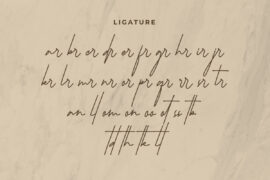 LIGATURE
ar br cr dr er fr gr hr ir jr
kr lr mr nr or pr gr rr vr tr
an ll om on oo ot ss tb
td th tk ll